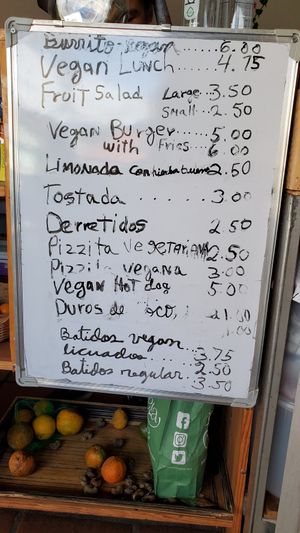 Burrito vegan.....6.00
Vegan Lunch.....4.75
Fruit Salad Large..3.50
Small..2.50
Vegan Burger......5.00
with Fries...6.00
Limonada con hierba buena 2.50
Tostada.........3.00
Derretidos 2.50
Pizzita vegetariana 2.50
Pizzita vegana 3.00
Vegan Hot dog 5.00
Duros de coco
Batidos vegan
licuados....3.75
Batidos regular...2.50
3.50